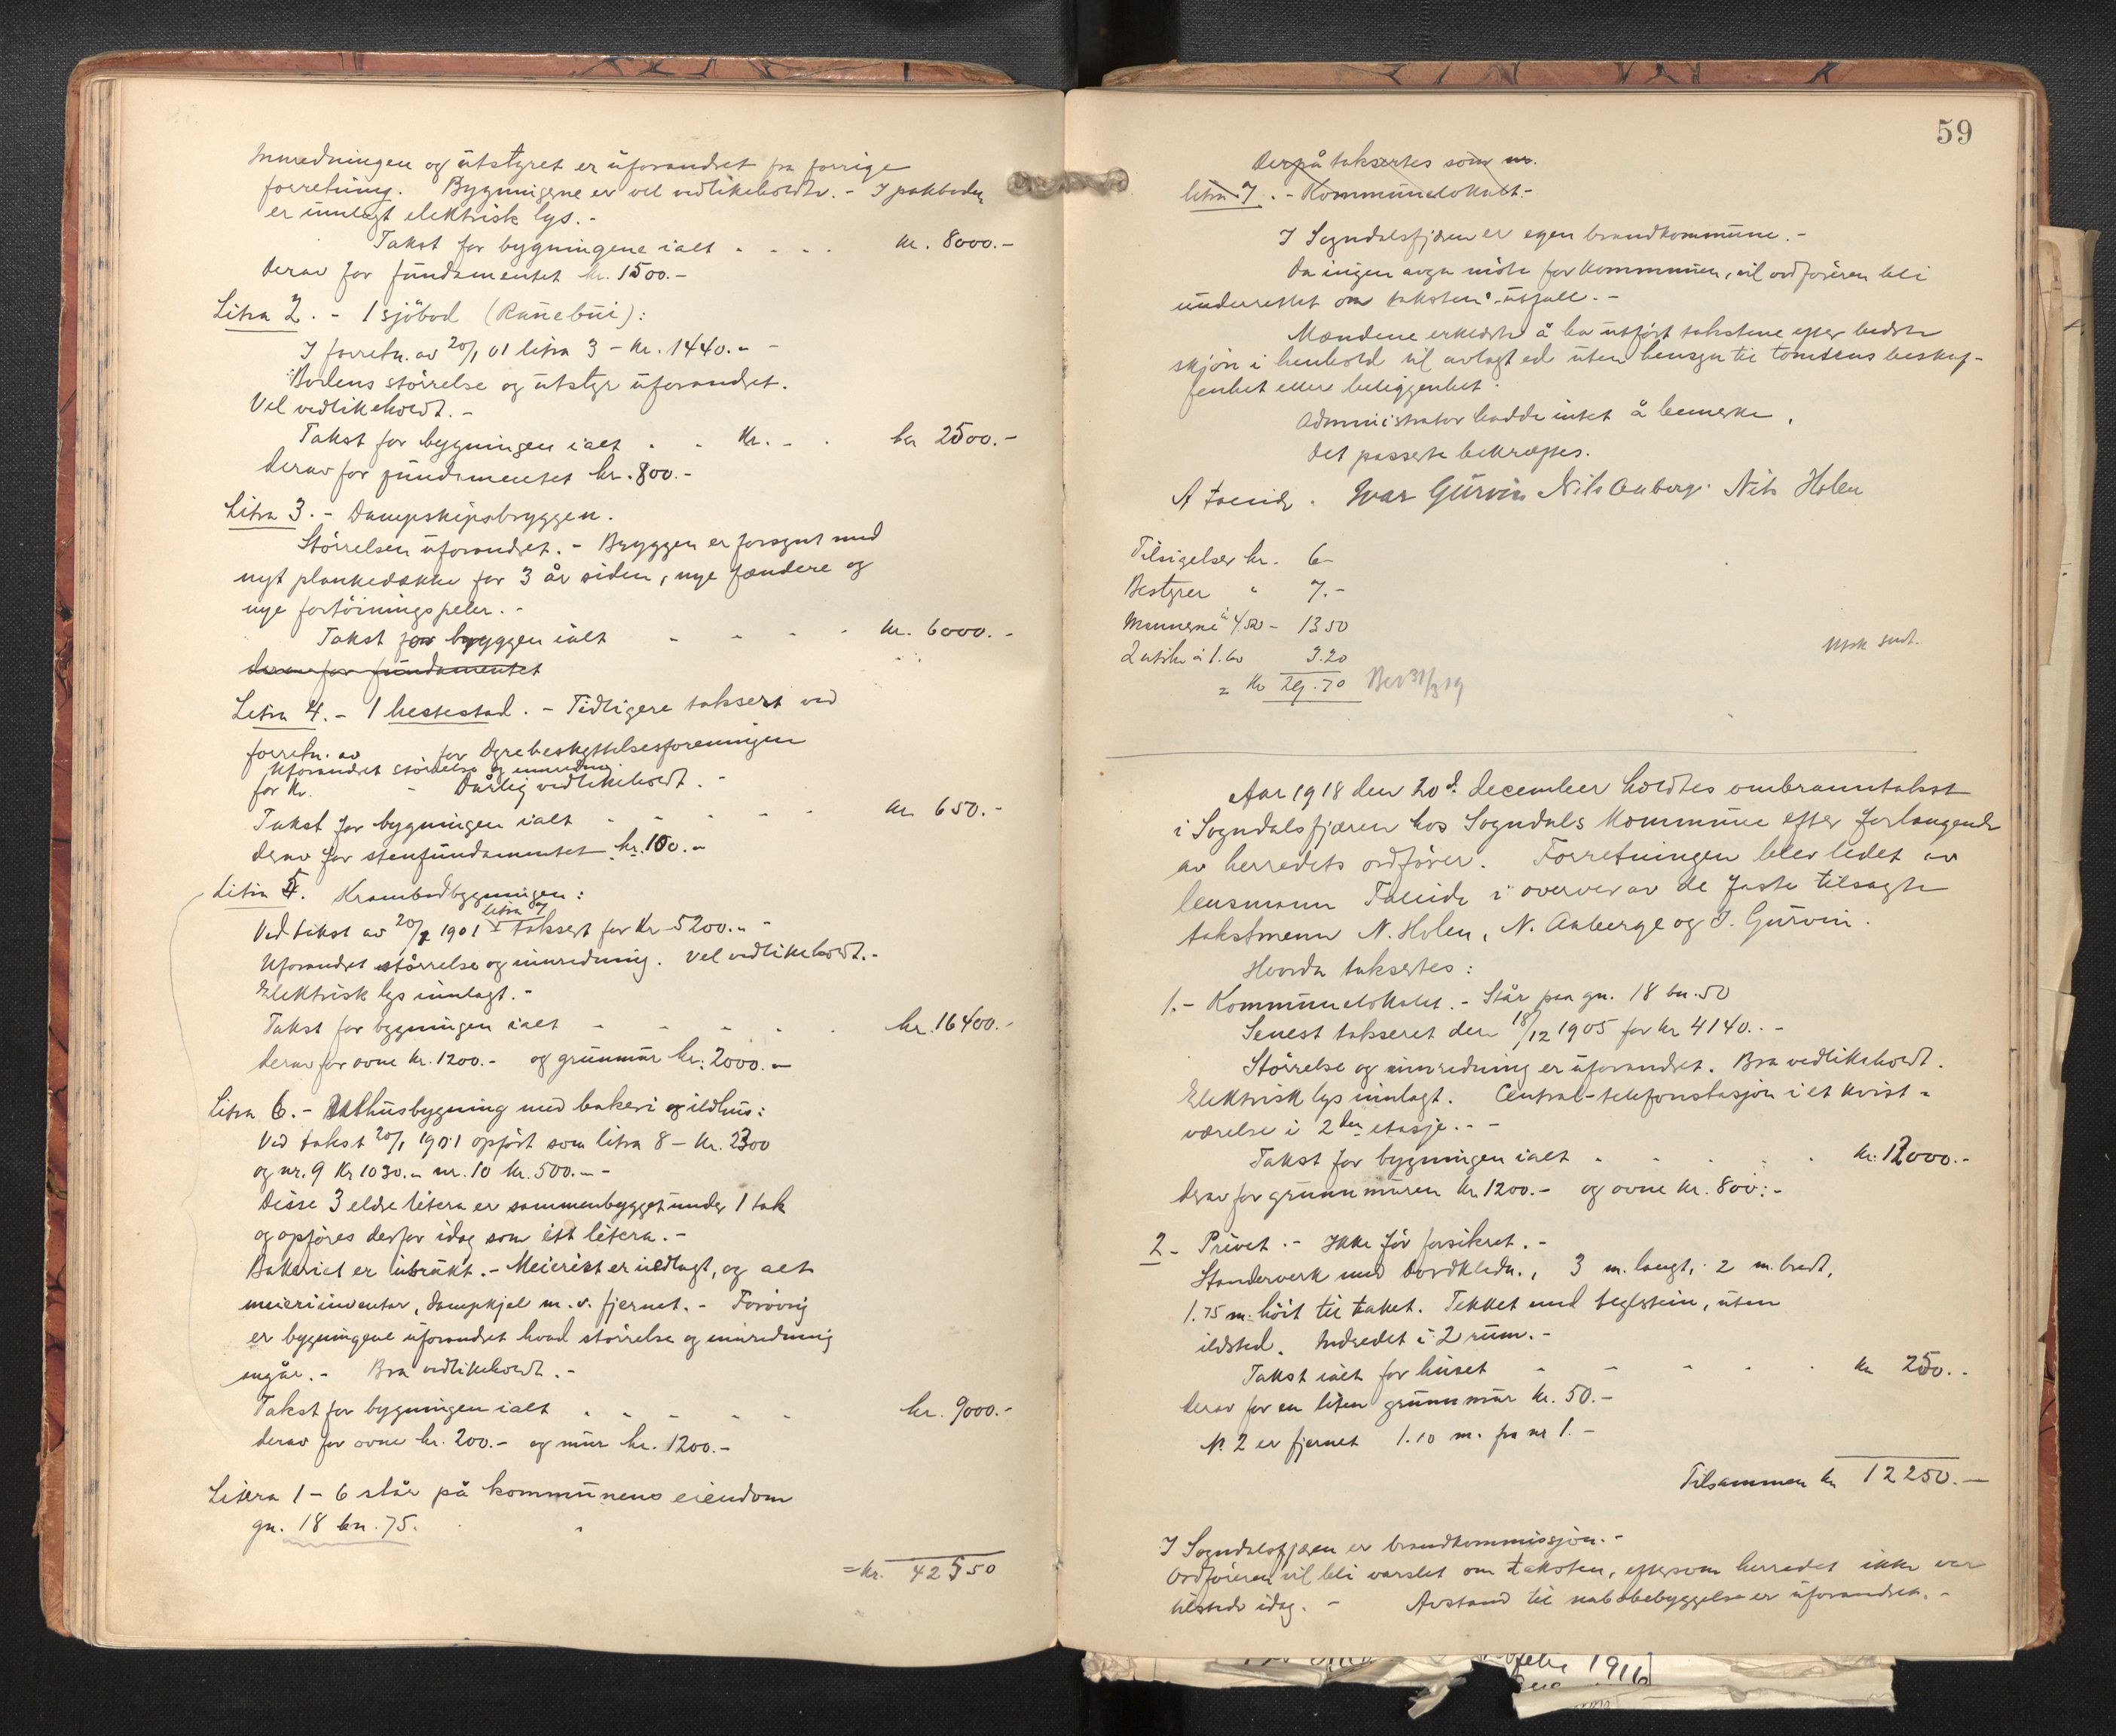 Innredningen og utstyret er uforandret fra forrige
forretning. Bygningene er vel vedlikeholdte. - I pakboden
er innlagt elektrisk lys. -
Takst for bygningene ialt . . . . kr. 8000.-
Derav for fundamentet kr. 1500.-
Litra 2. - 1 sjöbod (Runebui):
I forretn. av 20/1 01 litra 3 - Kr. 1440. - -
Bodens störrelse og utstyr uforandret.
Vel vedlikeholdt. -
Takst for bygningen ialt . . Kr. - . kr 2500.-
Derav for fundamentet kr. 800.-
Litra 3. - Dampskipsbryggen.
Störrelsen uforandret. - Bryggen er forsynt med
nyt plankedække for 3 år siden, nye fendere og
nye fortöiningspeler. -
Takst for bryggen ialt - - - - kr. 6000. -
derav for fundamentet
Litra 4. - 1 hestestad. - Tidligere taksert ved
forretn. av for Dyrebeskyttelsesforeningen
Uforandret störrelse og innredning.
for Kr. - Dårlig vedlikeholdt. -
Takst for bygningen ialt - - - - - kr 650.-
derav for stenfundamentet kr. 100.-
Litra 5. Krambodbygningen:
litra 7
Ved takst av 20/1 1901 taksert for Kr 5200. - -
Uforandret störrelse og innredning. Vel vedlikeholdt. -
Elektrisk lys innlagt. -
Takst for bygningen ialt - - - - - kr. 16400.-
derav for ovne kr. 1200.- og grunnmur kr. 2000. -
Litra 6. - Uthusbygning med bakeri og ildhus:
Ved takst 20/1 1901 opfört som litra 8 - Kr. 2300
og nr. 9 Kr 1030. - nr. 10 kr. 500. - -
Disse 3 eldre litera er sammenbygget under 1 tak
og opföres derfor idag som ett litera. -
Bakeriet er ubrukt. - Meieriet er nedlagt, og alt
meieriinventar, dampkjel m. v. fjernet. - Forövrig
er bygningene uforandret hvad störrelse og innredning
angår. - Bra vedlikeholdt. -
Takst for bygningen ialt . - - - - kr. 9000.-
derav for ovne kr. 200.- og mur kr. 1200.-
Litera 1 - 6 står på kommunens eiendom
gn. 18 bn. 75.
= Kr. 42550
59
Derpå taksertes som nr.
litra 7. - Kommunelokalet. -
I Sogndalsfjæren er egen brandkommune. -
Da ingen avga möte for kommunen, vil ordföreren bli
underrettet om takstens utfall. -
Mændene erklærte å ha utfört takstene efter bedste
skjön i henhold til avlagt ed uten hensyn til tomtens beskaf-
fenhet eller beliggenhet.
Administrator hadde intet å bemerke.
Det passerte bekræftes.
A Foleide. Ivar Gurvin Nils Aaberge Nils Holen
Tilsigelser kr. 6-
Bestyrer " 7.-
Mennene à 4.50 - 13 50
2 utskr à 1.60 3.20
= Kr 29.70 Bet 31/3 19
Utsk sendt.
Aar 1918 den 20d. december holdtes ombranntakst
i Sogndalsfjæren hos Sogndals Kommune efter forlangende
av herredets ordförer. Forretningen blev ledet av
lensmann Foleide i overvær av de faste tilsagte
takstmenn N. Holen, N. Aaberge og I. Gurvin.
Hvorda taksertes:
1. - Kommunelokalet. - Står paa gn. 18 bn. 50
Senest takseret den 18/12 1905 for kr 4140. - -
Störrelse og innredning er uforandret. Bra vedlikeholdt.
Elektrisk lys innlagt. Central-telefonstasjon i et kvist-
værelse i 2den etasje. - -
Takst for bygningen ialt - - - - . kr. 12000.-
derav for grunnmuren kr. 1200.- og ovne kr. 800. -
2 - Privet. - Ikke för forsikret. -
Stenderverk med bordkledn., 3 m. langt, 2 m. bredt,
1.75 m. höit til taket. Tekket med teglstein, uten
ildsted. Indredet i 2 rum. -
Takst ialt for huset - - - - . kr 250. -
derav for en liten grunnmur kr. 50.-
Nr. 2 er fjernet 1.10 m. fra nr 1. -
Tilsammen kr 12250. -
I Sogndalsfjæren er brandkommissjon. -
Ordföreren vil bli varslet om taksten, eftersom herredet ikke var
tilstede idag. - Avstand til nabobebyggelse er uforandret. -
1916